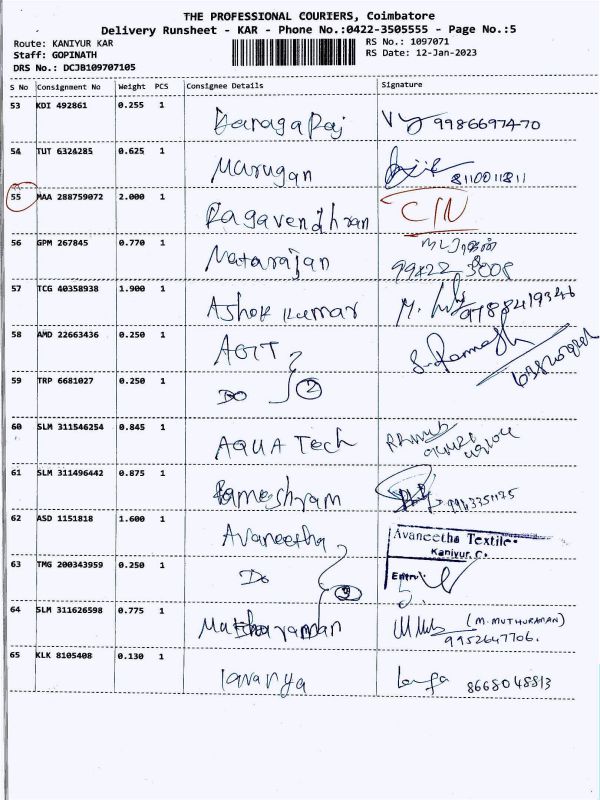 THE PROFESSIONAL COURIERS, Coimbatore
Delivery Runsheet - KAR - Phone No.:0422-3505555 - Page No.:5
Route: KANIYUR KAR
Staff: GOPINATH
DRS No.: DCJB109707105
RS No.: 1097071
RS Date: 12-Jan-2023
S No Consignment No Weight PCS Consignee Details Signature
53 KDI 492861 0.255 1 9986697470
54 TUT 6324285 0.625 1 Murugan 8110011811
55 MAA 288759072 2.000 1 Ragavendhran C/N
56 GPM 267845 0.770 1 Natarajan நடராஜன்
57 TCG 40358938 1.900 1 Ashok Kumar
58 AMD 22663436 0.250 1 AGIT
59 TRP 6681027 0.250 1 DO 2
60 SLM 311546254 0.845 1 AQUA Tech
61 SLM 311496442 0.875 1 Rameshyam
62 ASD 1151818 1.600 1 Avaneetha Avaneetha Textile
Kaniyur.C.
63 TMG 200343959 0.250 1 Do
64 SLM 311626598 0.775 1 (M.MUTHURAMAN)
9952647706.
65 KLK 8105408 0.130 1 lavanya 8668048813